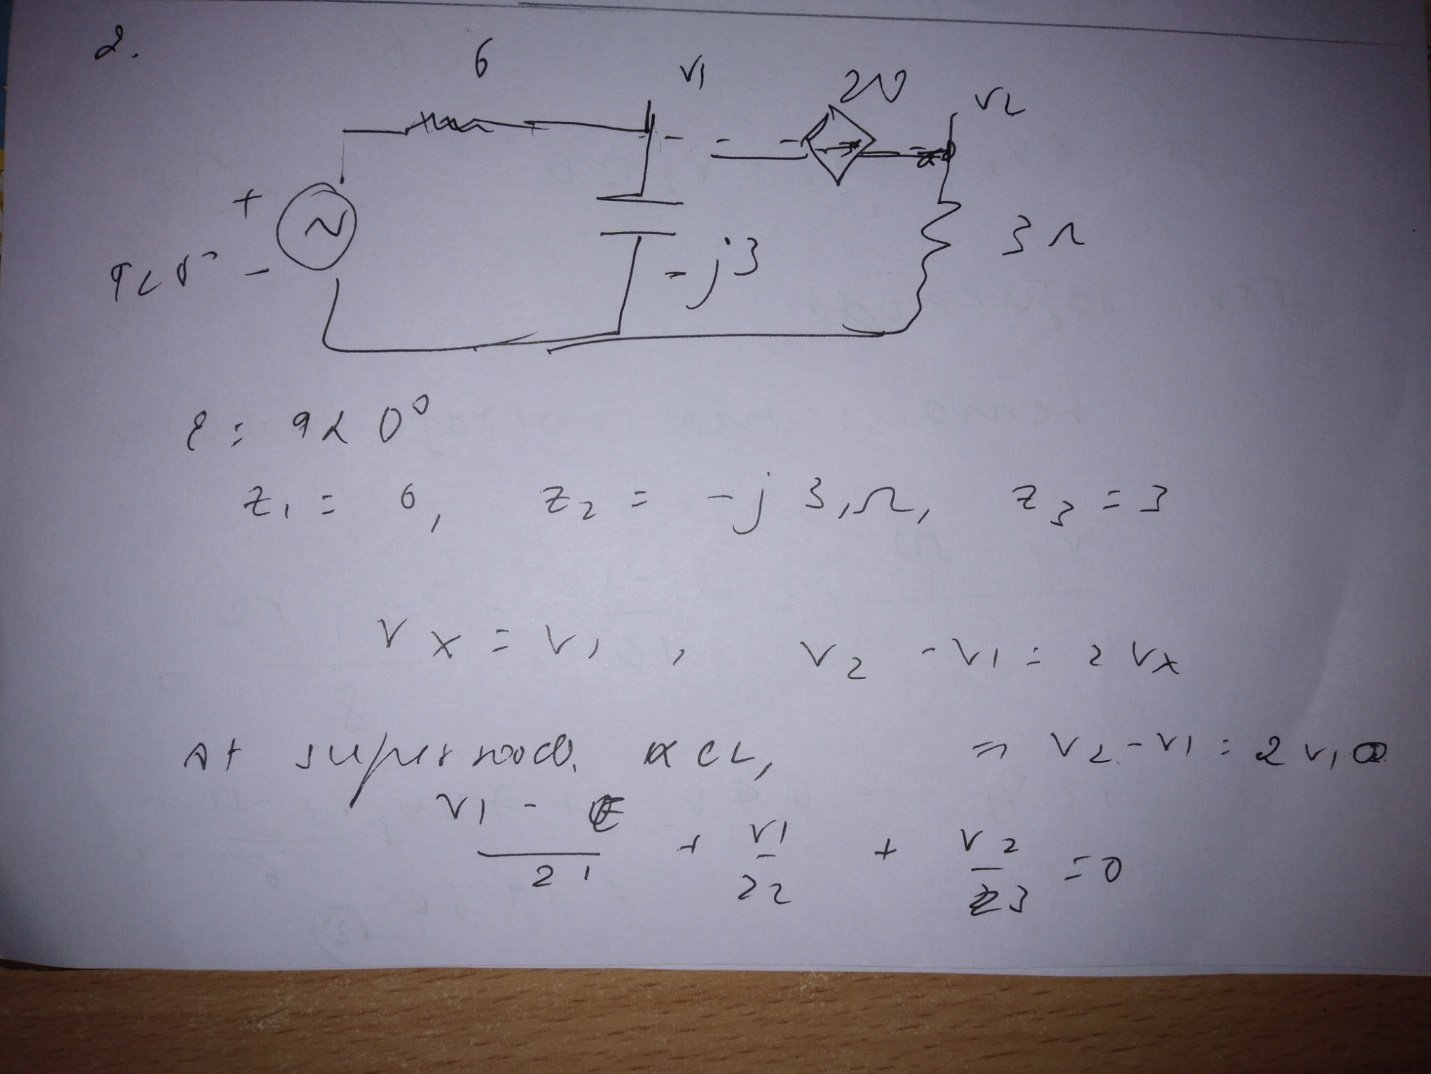 2.
6 V1 2V V2
+
9∠0° -
-j3 3Ω
E = 9∠0°
Z1 = 6, Z2 = -j3,Ω, Z3 = 3
Vx = V1, V2 - V1 = 2Vx
At supernode KCL, ⇒ V2 - V1 = 2V1
V1 - E / Z1 + V1 / Z2 + V2 / Z3 = 0